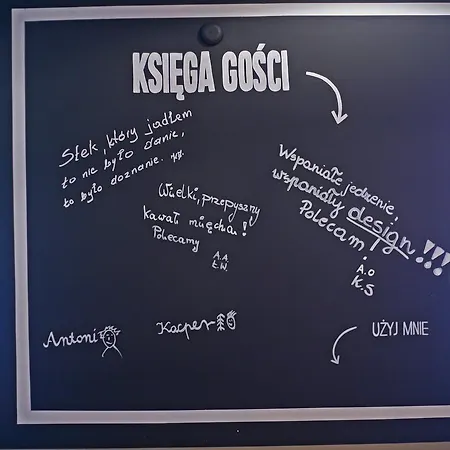 KSIĘGA GOŚCI
Stek, który jadłem
to nie było danie,
to było doznanie.
Wspaniałe jedzenie,
wspaniały design!!!
Polecam!
A.O
K.S
Wielki, przepyszny
kawał mięcha!
Polecamy
A.A
Ł.W.
Antoni
Kacper
UŻYJ MNIE